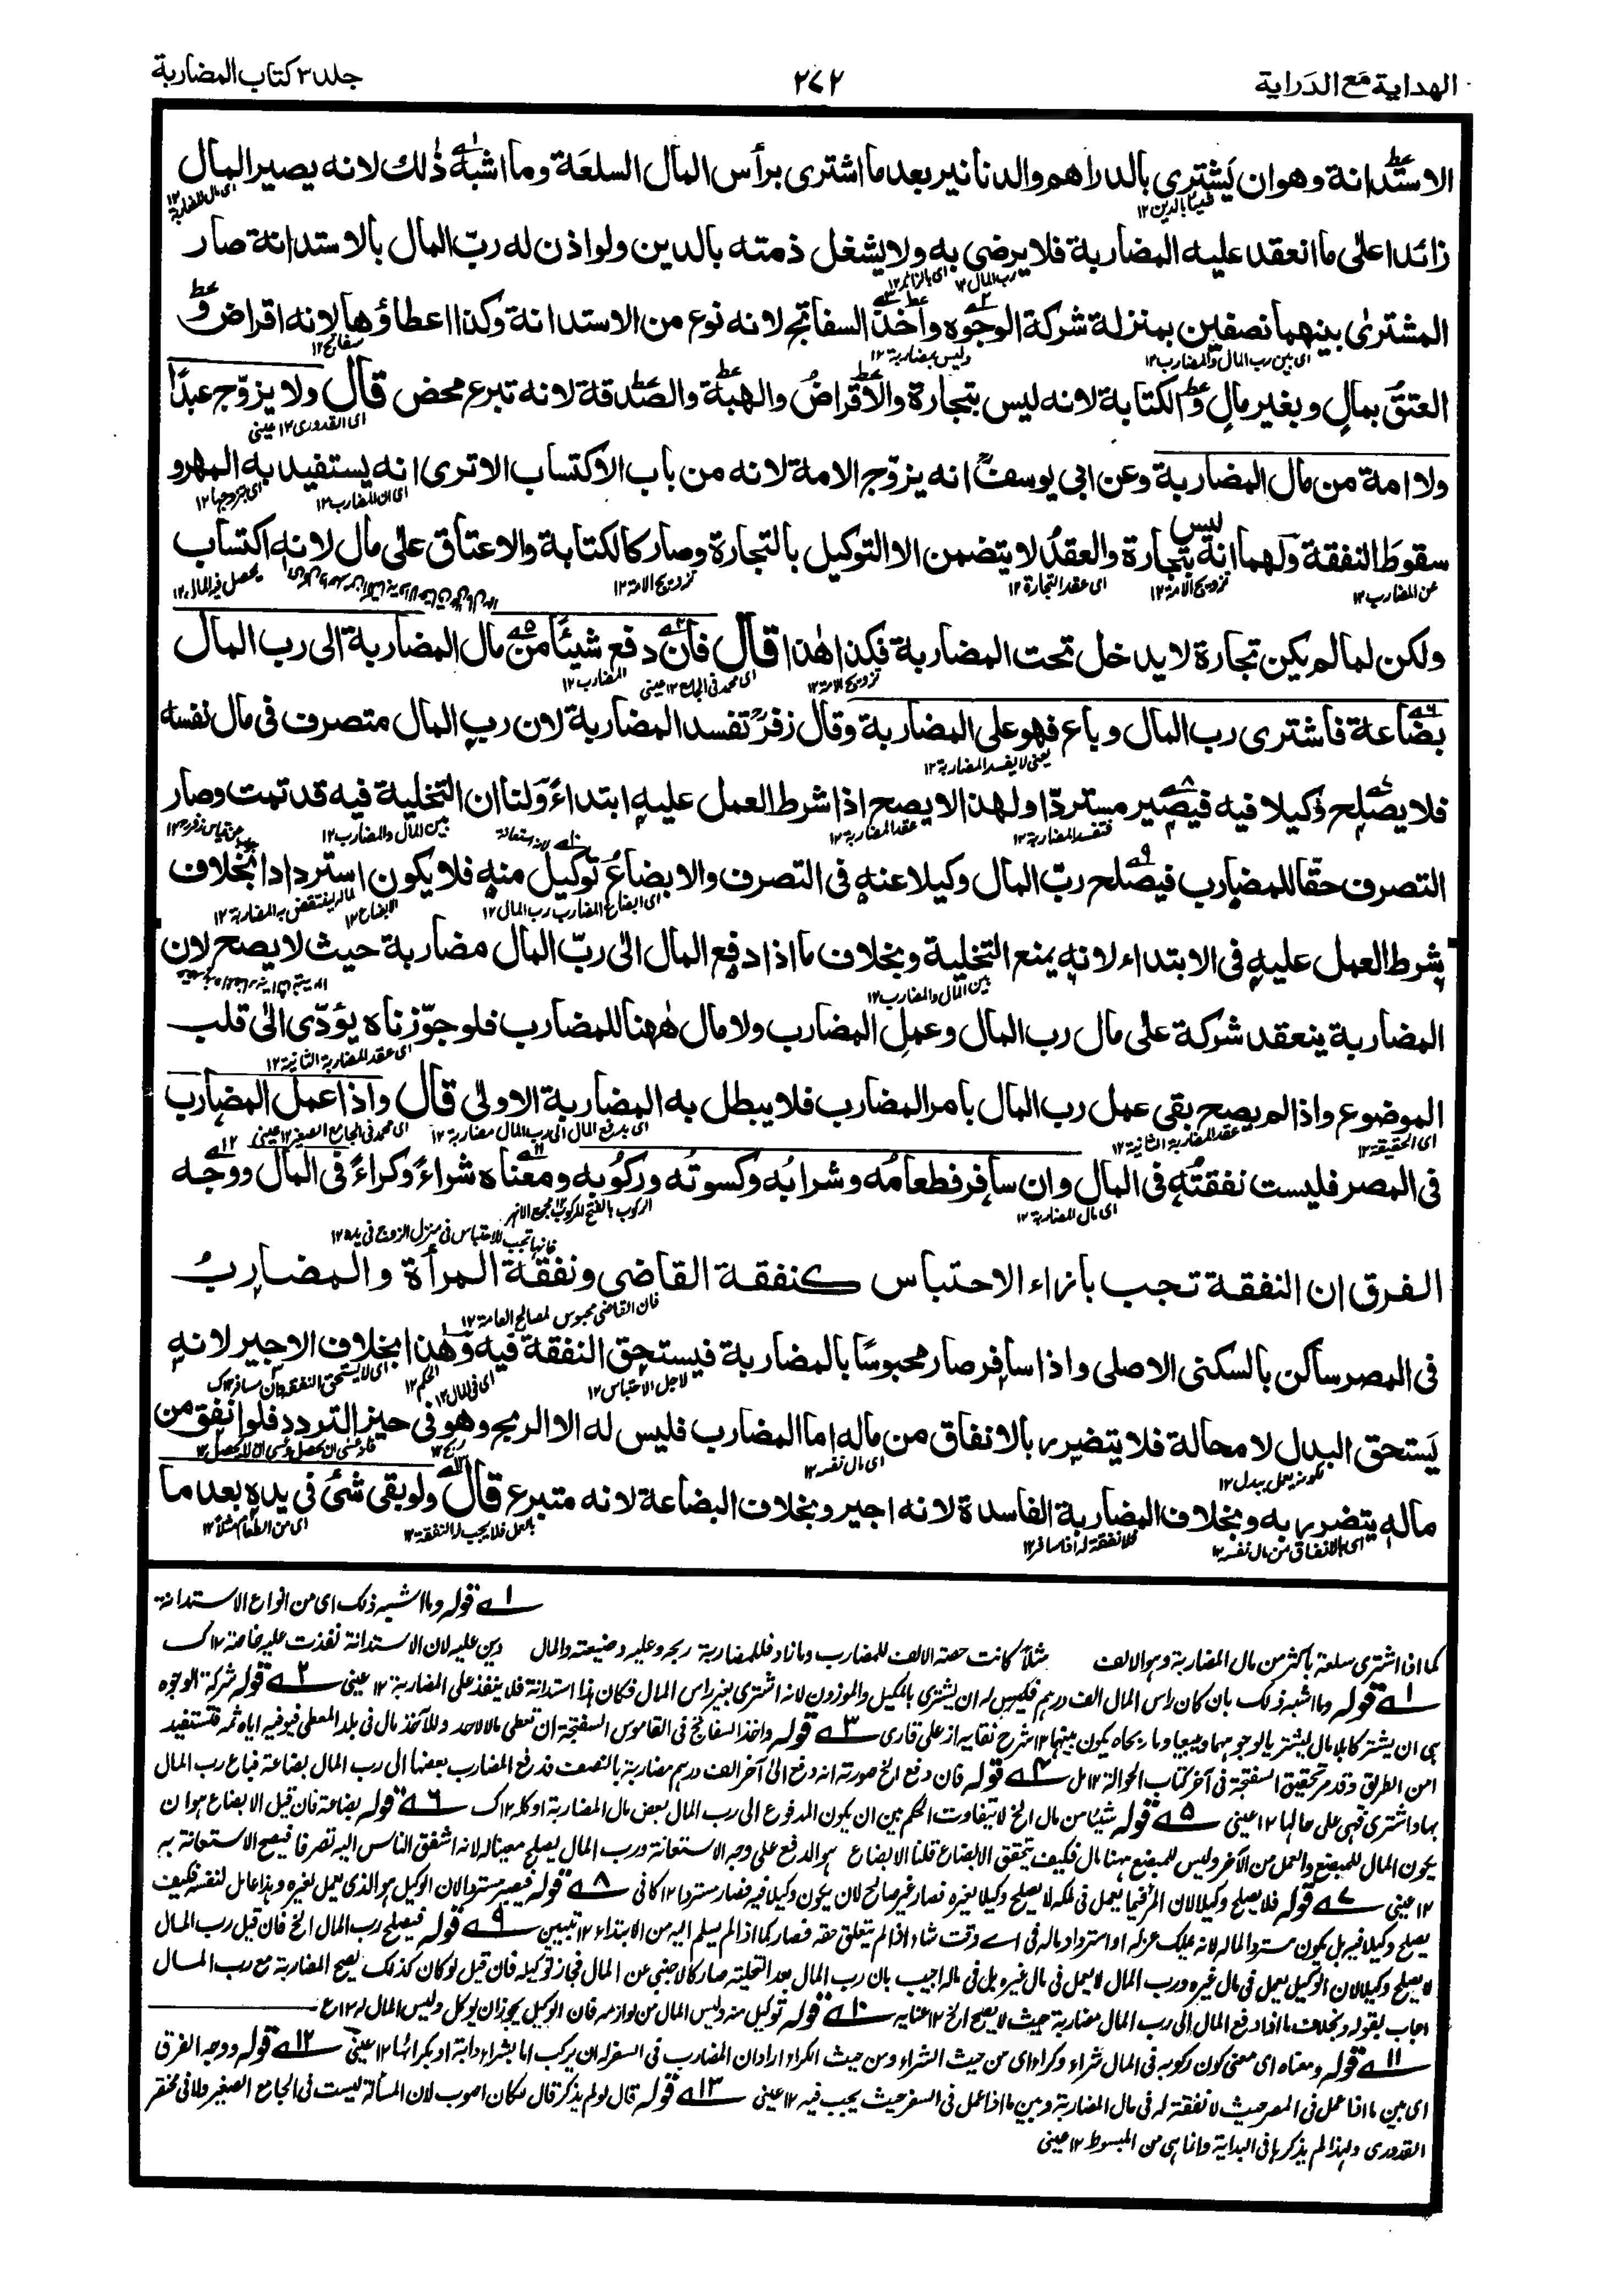 الهداية مع الدراية
٢٧٢
جلد ٣ كتاب المضاربة
الاستدانة وهو ان يشترى بالدراهم والدنانير بعد ما اشترى برأس المال السلعة وما اشبه ذٰلك لانه يصير المال
زائدا على ما انعقد عليه المضاربة فلا يرضى به ولا يشغل ذمته بالدين ولو اذن له ربّ المال بالاستدانة صار
المشترى بينهما نصفين بمنزلة شركة الوجوه واخذ السفاتج لانه نوع من الاستدانة وكذا اعطاؤها لانه اقراض و
العتق بمالٍ وبغير مالٍ والكتابة لانه ليس بتجارة والاقراض والهبة والصدقة لانه تبرع محض قال ولا يزوّج عبدًا
ولا امة من مال المضاربة وعن ابى يوسف انه يزوّج الامة لانه من باب الاكتساب الا ترى انه يستفيد به المهر و
سقوط النفقة ولهما انه ليس بتجارة والعقد لا يتضمن الا التوكيل بالتجارة وصار كالكتابة والاعتاق على مال لانه اكتساب
ولكن لما لم يكن تجارة لا يدخل تحت المضاربة فكذا هٰذا قال فان دفع شيئًا من مال المضاربة الى رب المال
بضاعة فاشترى رب المال وباع فهو على المضاربة وقال زفر تفسد المضاربة لان رب المال متصرف فى مال نفسه
فلا يصلح وكيلا فيه فيصير مستردّا ولهذا لا يصح اذا شرط العمل عليه ابتداءً ولنا ان التخلية فيه قد تمت وصار
التصرف حقّا للمضارب فيصلح ربّ المال وكيلا عنه فى التصرف والابضاعُ توكيل منه فلا يكون استردادا بخلاف
شرط العمل عليه فى الابتداء لانه يمنع التخلية وبخلاف ما اذا دفع المال الى ربّ المال مضاربة حيث لا يصح لان
المضاربة ينعقد شركة على مال رب المال وعمل المضارب ولا مال هٰهنا للمضارب فلو جوّزناه يؤدّى الى قلب
الموضوع واذا لم يصح بقى عمل رب المال بامر المضارب فلا يبطل به المضاربة الاولى قال واذا عمل المضارب
فى المصر فليست نفقته فى المال وان سافر فطعامُه وشرابُه وكسوتُه وركوبُه ومعناه شراءً وكراءً فى المال ووجه
الفرق ان النفقة تجب بازاء الاحتباس كنفقة القاضى ونفقة المرأة والمضاربُ
فى المصر ساكن بالسكنى الاصلى واذا سافر صار محبوسًا بالمضاربة فيستحق النفقة فيه وهٰذا بخلاف الاجير لانه
يَستحق البدل لا محالة فلا يتضرر بالانفاق من ماله اما المضارب فليس له الا الربح وهو فى حيز التردد فلو انفق من
ماله يتضرر به وبخلاف المضاربة الفاسدة لانه اجير وبخلاف البضاعة لانه متبرع قال ولو بقى شئ فى يده بعد ما
١ قوله وما اشبه ذلك اى من انواع الاستدانة
كما اذا اشترى سلعة باكثر من مال المضاربة وهو الالف مثلاً كانت حصة الالف للمضارب وما زاد فللمضاربة ربحه وعليه وضيعته والمال دين عليه لان الاستدانة نفذت عليه خاصة ١٢ ك
١ قوله وما اشبه ذلك بان كان راس المال الف درهم فليس له ان يشترى بالمكيل والموزون لانه اشترى بغير راس المال فكان هذا استدانة فلا ينفذ على المضاربة ١٢ عينى ٢ قوله شركة الوجوه
هى ان يشتركا بلا مال ليشتريا لوجوههما ويبيعا وما ربحاه يكون بينهما ١٢ شرح نقايه از على قارى ٣ قوله واخذ السفاتج فى القاموس السفتجة ان تعطى مالا لاحد وللآخذ مال فى بلد المعطى فيوفيه اياه ثمه فتستفيد
امن الطريق وقد مر تحقيق السفتجة فى آخر كتاب الحوالة ١٢ مل ٤ قوله فان دفع الخ صورته انه دفع الى آخر الف درهم مضاربة بالنصف فدفع المضارب بعضها الى رب المال بضاعة فباع رب المال
بها واشترى فهى على حالها ١٢ عينى ٥ قوله شيئا من مال الخ لا يتفاوت الحكم بين ان يكون المدفوع الى رب المال بعض مال المضاربة او كله ١٢ ك ٦ قوله بضاعة فان قيل الابضاع هو ان
يكون المال للمبضع والعمل من الآخر وليس للمبضع ههنا مال فكيف يتحقق الابضاع قلنا الابضاع هو الدفع على وجه الاستعانة ورب المال يصلح معينا له لانه اشفق الناس اليه تصرفا فيصح الاستعانة به
١٢ عينى ٧ قوله فلا يصلح وكيلا لان المرء فيما يعمل فى ملكه لا يصلح وكيلا لغيره فصار غير صالح لان يكون وكيلا فيه فصار مستردا ١٢ كافى ٨ قوله فيصير مستردا لان الوكيل هو الذى يعمل لغيره وهذا عامل لنفسه فكيف
يصلح وكيلا فيه بل يكون مستردا لماله لانه يملك عزله او استرداد ماله فى اى وقت شاء اذا لم يتعلق حقه فصار كما اذا لم يسلم اليه من الابتداء ١٢ تبيين ٩ قوله فيصلح رب المال الخ فان قيل رب المال
لا يصلح وكيلا لان الوكيل يعمل فى مال غيره ورب المال لا يعمل فى مال غيره بل فى ماله اجيب بان رب المال بعد التخلية صار كالاجنبى عن المال فجاز توكيله فان قيل لو كان كذلك يصح المضاربة مع رب المال
اجاب بقوله وبخلاف ما اذا دفع المال الى رب المال مضاربة حيث لا يصح الخ ١٢ عنايه ١٠ قوله توكيل منه وليس المال من لوازمه فان الوكيل يجوز ان يوكل وليس المال له ١٢ ع
١١ قوله ومعناه اى معنى كون ركوبه فى المال شراء وكراء اى من حيث الشراء ومن حيث الكراء اراد ان المضارب فى السفر له ان يركب اما بشراء دابة او بكرائها ١٢ عينى ١٢ قوله ووجه الفرق
اى بين ما اذا عمل فى المصر حيث لا نفقة له فى مال المضاربة وبين ما اذا عمل فى السفر حيث يجب فيه ١٢ عينى ١٣ قوله قال لو لم يذكر قال لكان اصوب لان المسألة ليست فى الجامع الصغير ولا فى مختصر
القدورى ولهذا لم يذكرها فى البداية وانما هى من المبسوط ١٢ عينى